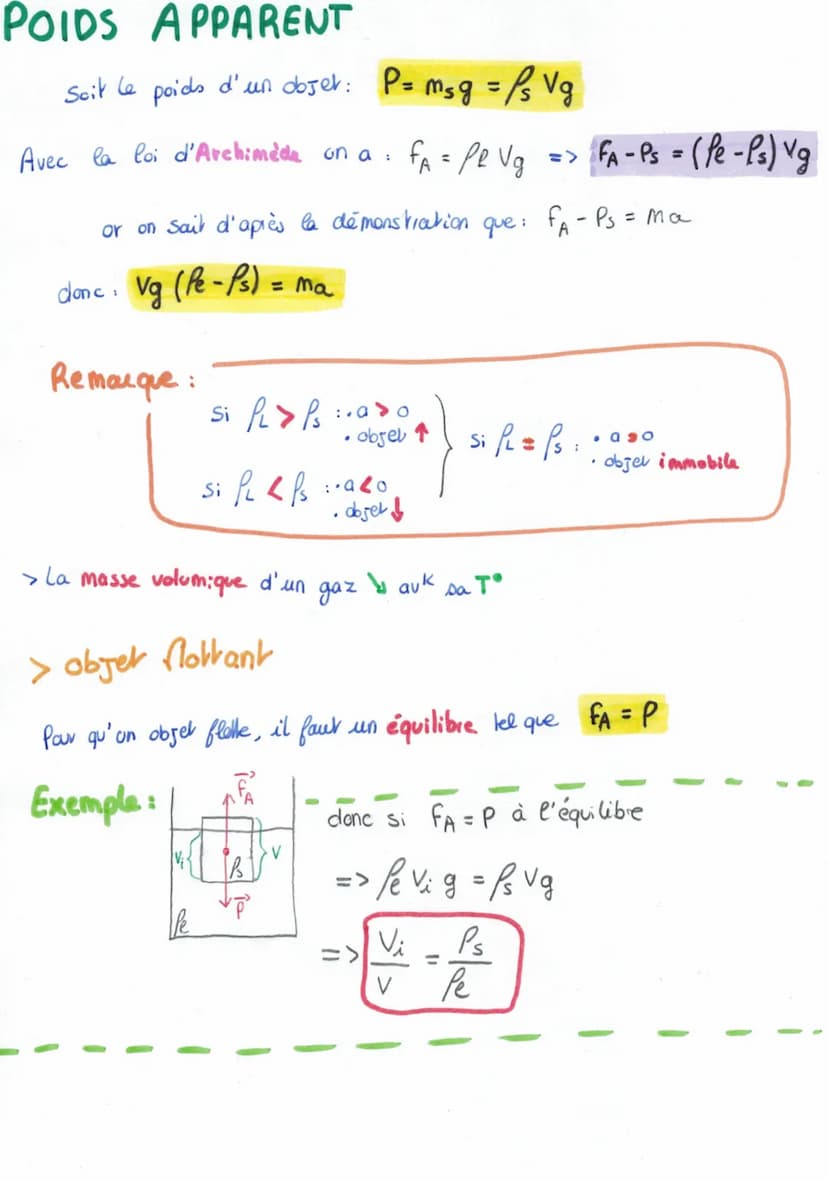 POIDS APPARENT
Soit le poids d'un objet : P = mₛg = ρₛ Vg
Avec la loi d'Archimède on a : F_A = ρℓ Vg => F_A - Pₛ = (ρℓ - ρₛ) Vg
or on sait d'après la démonstration que : F_A - Pₛ = ma
donc : Vg (ρℓ - ρₛ) = ma
Remarque :
Si ρ_L > ρₛ : • a > 0
• objet ↑
si ρ_L < ρₛ : • a < 0
• objet ↓
Si ρ_L = ρₛ : • a = 0
• objet immobile
> La masse volumique d'un gaz ↘ avk sa T°
> objet flottant
Pour qu'un objet flotte, il faut un équilibre tel que F_A = P
Exemple :
F_A
Vᵢ
ρₛ
V
P
ρℓ
donc si F_A = P à l'équilibre
=> ρℓ Vᵢ g = ρₛ Vg
=> Vᵢ / V = ρₛ / ρℓ